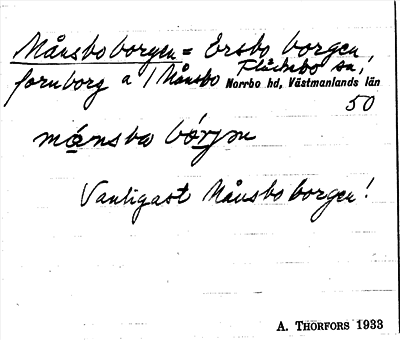 Månsboborgen = Ersbo borgen,
fornborg a / Månsbo Fläckebo sn,
Norrbo hd, Västmanlands län
50
månsbo bórjɛn
Vanligast Månsboborgen!
A. THORFORS 1933